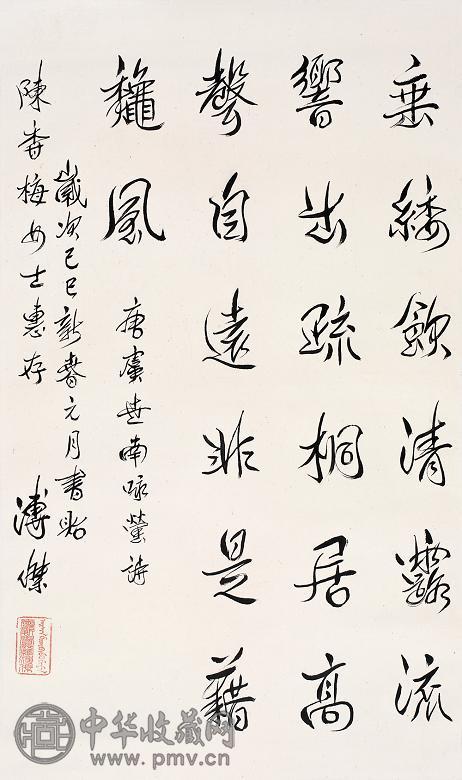 垂緌飲清露流
響出疏桐居高
聲自遠非是藉
龝風
唐虞世南咏螢詩
歲次己巳新春元月書貽
陳香梅女士惠存
溥傑
中华收藏网
www.pmv.cn